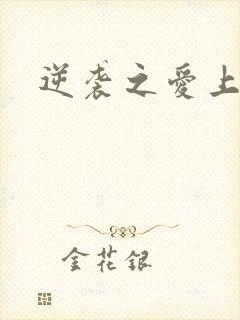 逆袭之爱上
金花银